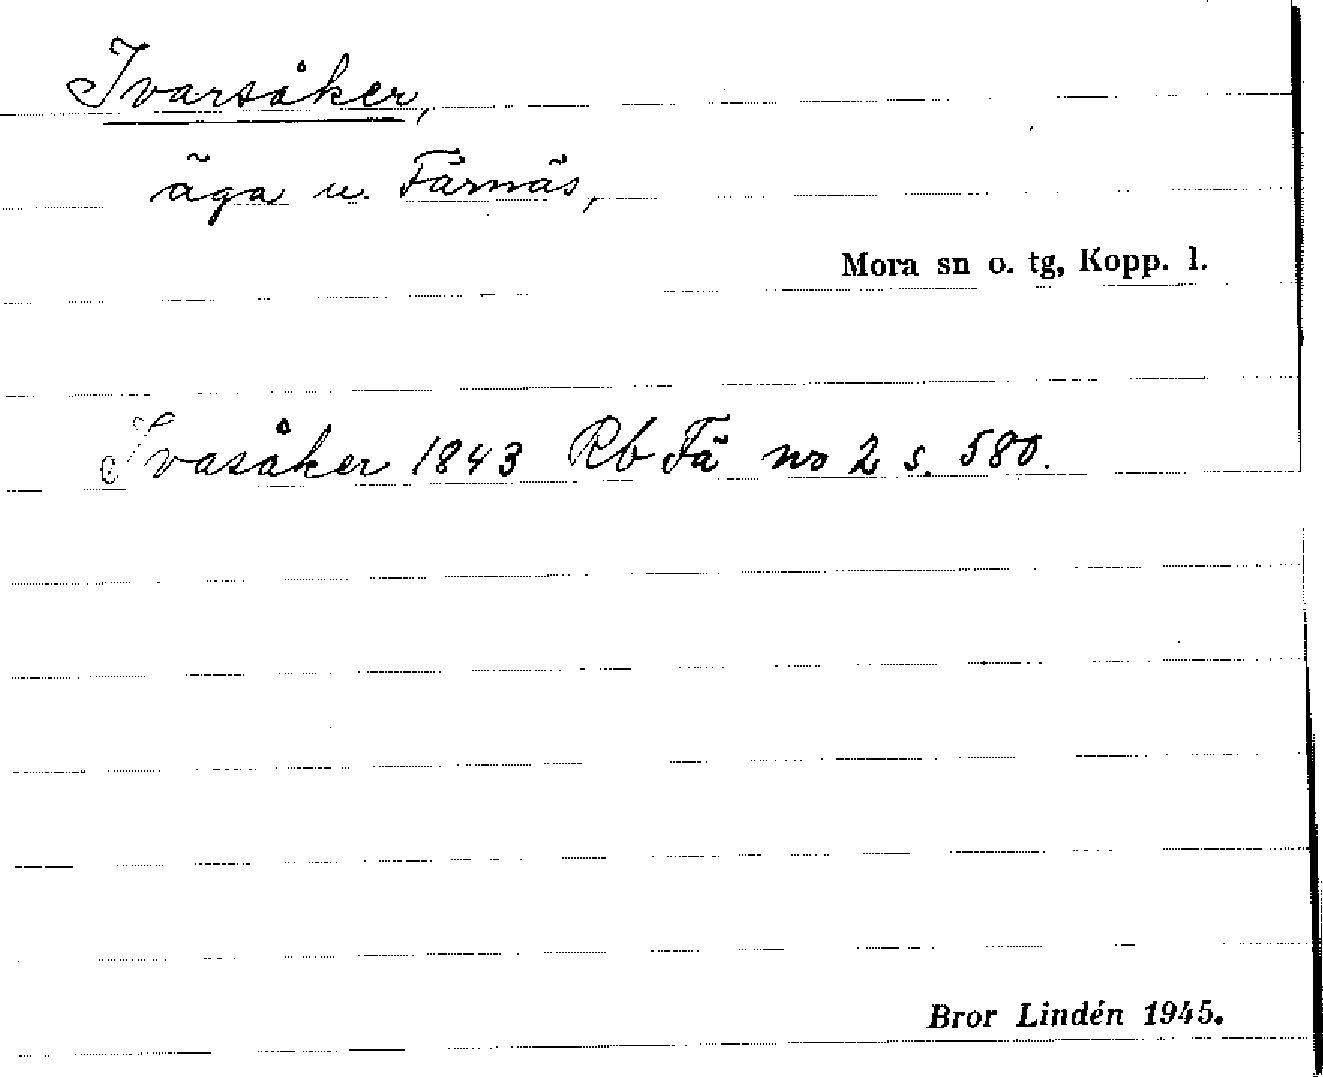 Ivarsåker,
äga u. Färnäs,
Mora sn o. tg, Kopp. l.
Ivasåker 1843 Rb Fä no 2 s. 580.
Bror Lindén 1945.